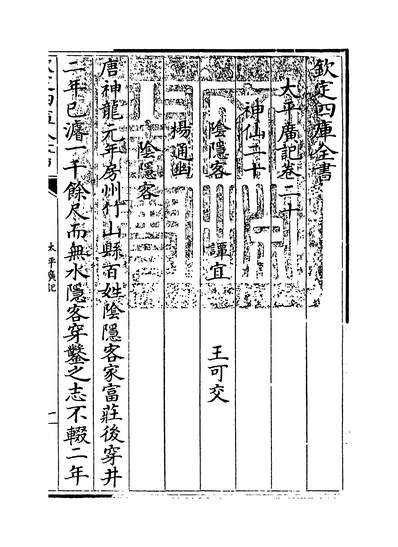 欽定四庫全書
太平廣記卷二十
神仙二十
陰隱客　譚宜　王可交
楊通幽
陰隱客
唐神龍元年房州竹山縣百姓陰隱客家富莊後穿井
二年已濬一千餘尺而無水隱客穿鑿之志不輟二年
太平廣記